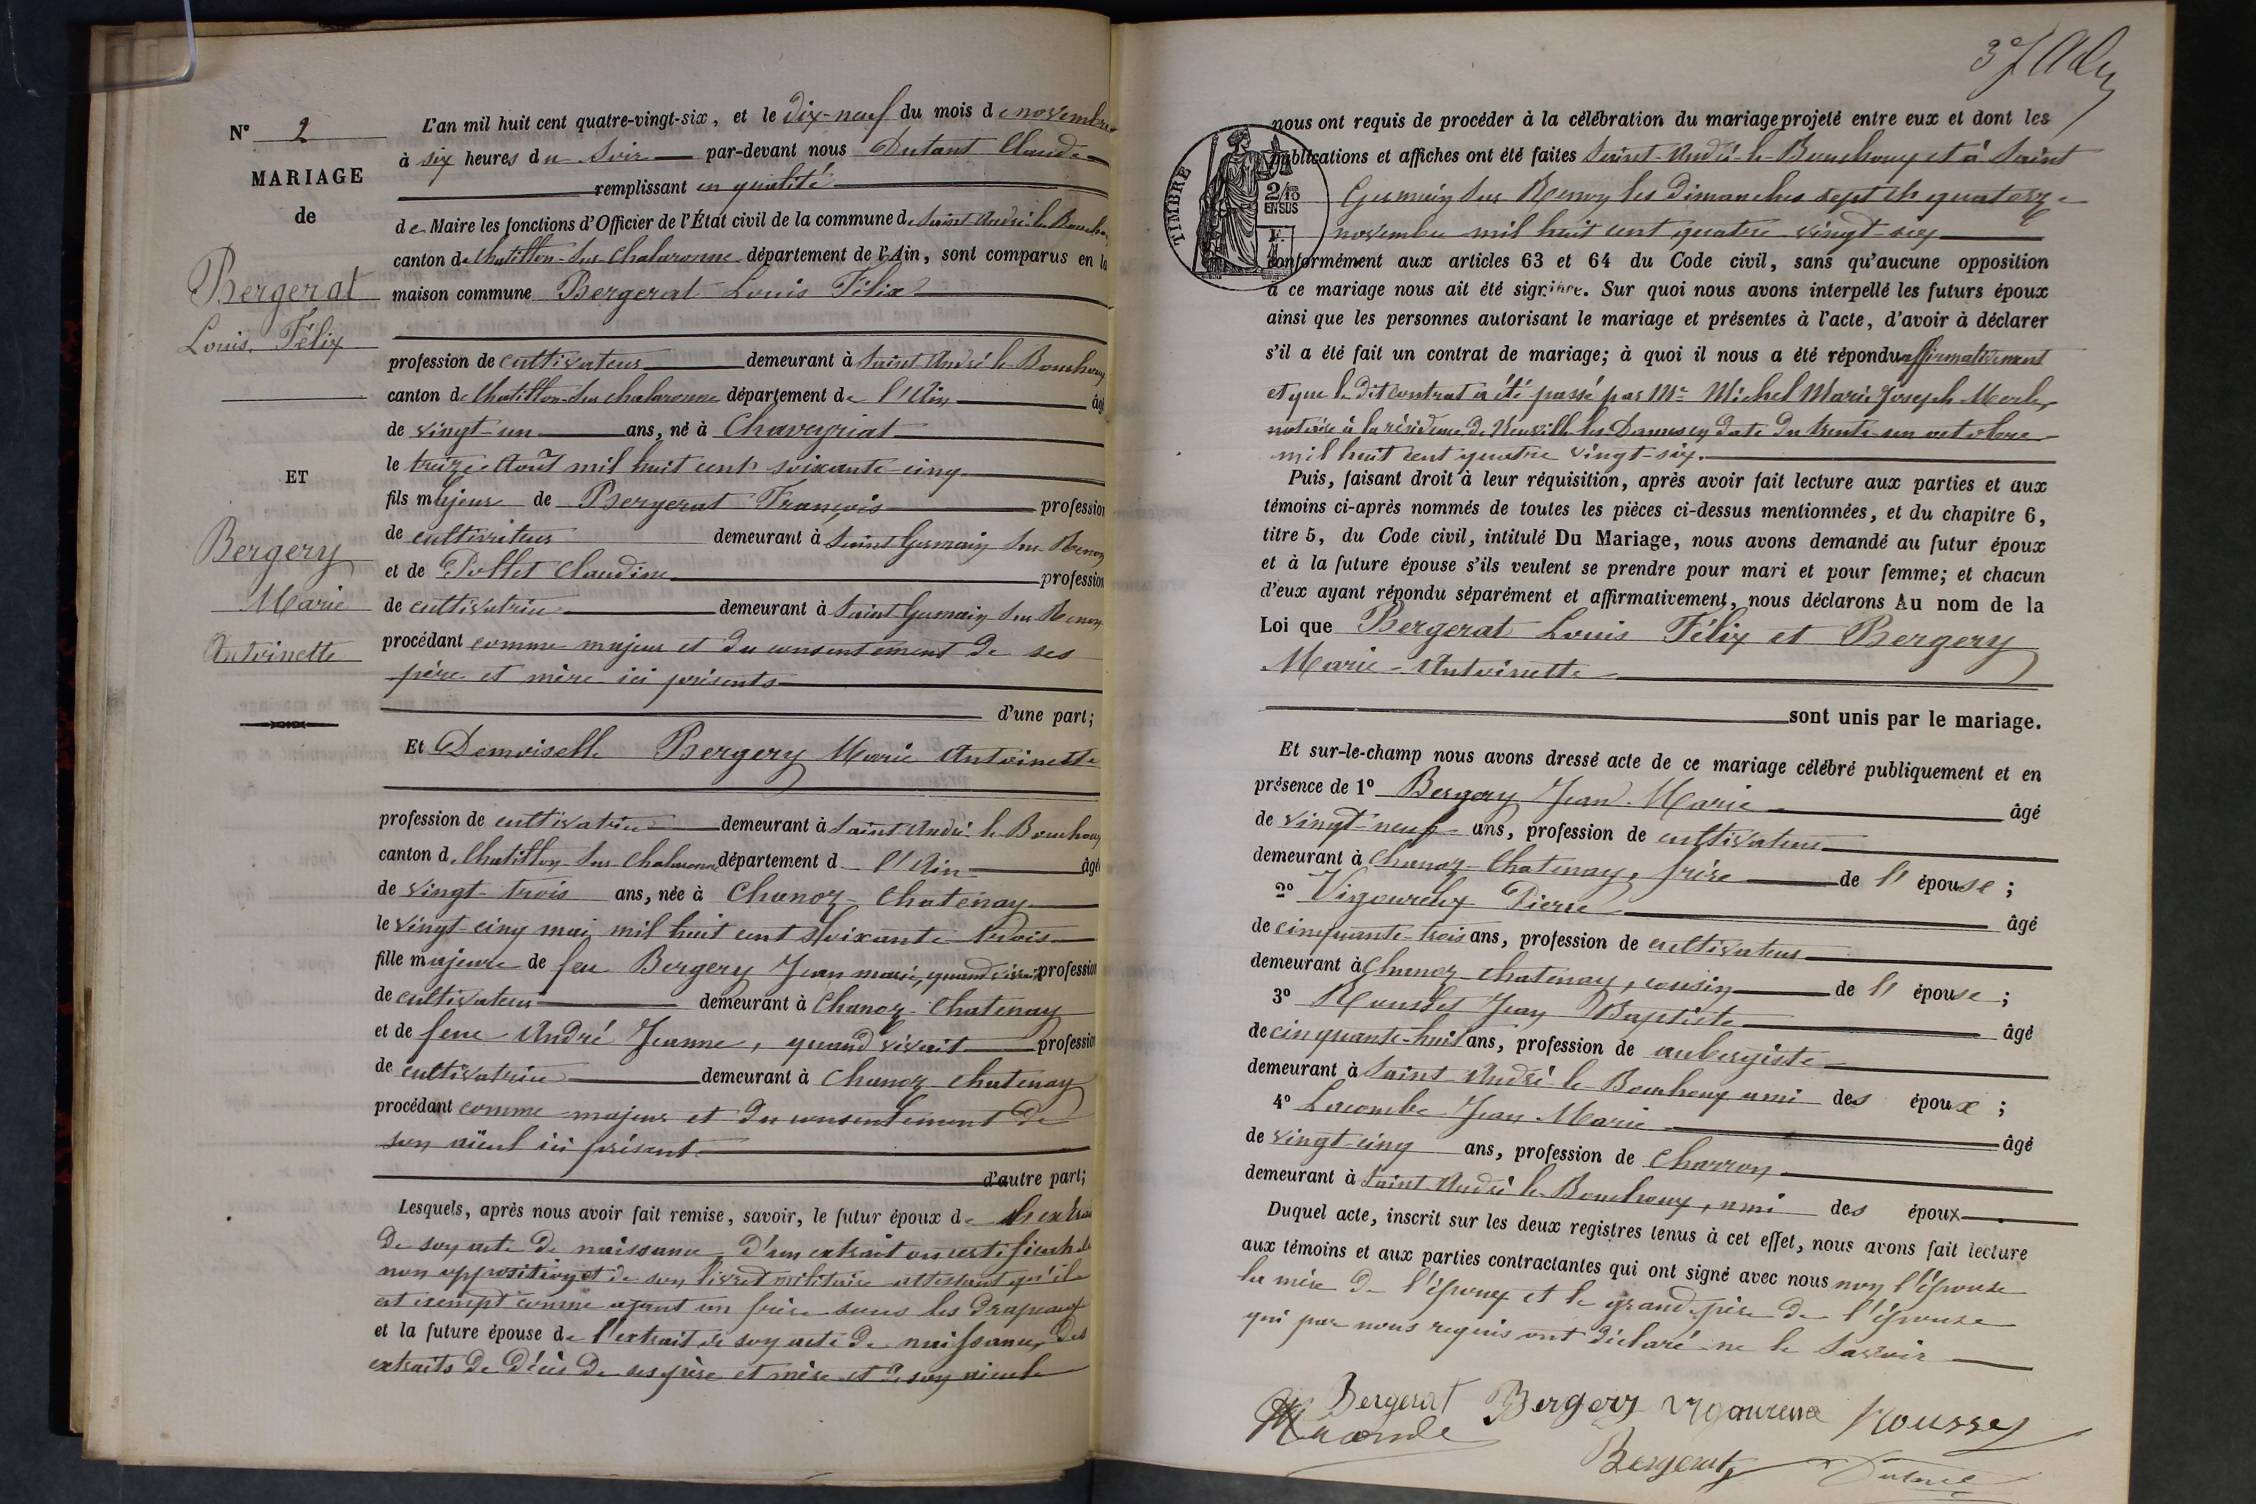 N° 2
MARIAGE
de
Bergerat
Louis Félix
ET
Bergery
Marie
Antoinette
L'an mil huit cent quatre-vingt-six, et le dix-neuf du mois de novembre
à six heures du soir par-devant nous Dutant Claude
remplissant en qualité
de Maire les fonctions d'Officier de l'État civil de la commune de Saint André le Bouchoux
canton de Chatillon-sur Chalaronne département de l'Ain, sont comparus en la
maison commune Bergerat Louis Félix
profession de cultivateur demeurant à Saint André le Bouchoux
canton de Chatillon-sur Chalaronne département de l'Ain âgé
de vingt-un ans, né à Chaveyriat
le treize Août mil huit cent soixante-cinq
fils majeur de Bergerat François profession
de cultivateur demeurant à Saint Germain sur Renon
et de Pollet Claudine profession
de cultivatrice demeurant à Saint Germain sur Renon
procédant comme majeur et du consentement de ses
père et mère ici présents
d'une part;
Et Demoiselle Bergery Marie Antoinette
profession de cultivatrice demeurant à Saint André le Bouchoux
canton de Chatillon sur Chalaronne département de l'Ain âgée
de vingt-trois ans, née à Chanoz-Chatenay
le vingt cinq mai mil huit cent soixante trois
fille majeure de feu Bergery Jean marie, quand vivait profession
de cultivateur demeurant à Chanoz-Chatenay
et de feue André Jeanne, quand vivait profession
de cultivatrice demeurant à Chanoz-Chatenay
procédant comme majeur et du consentement de
son aïeul ici présent
d'autre part;
Lesquels, après nous avoir fait remise, savoir, le futur époux de
de son acte de naissance d'un extrait ou certificat de
non opposition et de son livret militaire attestant qu'il
est exempt comme ayant un frère sous les drapeaux
et la future épouse de l'extrait de son acte de naissance, des
extraits de décès de ses père et mère et de son aieule
nous ont requis de procéder à la célébration du mariage projeté entre eux et dont les
publications et affiches ont été faites Saint-André-le-Bouchoux et à Saint
Germain sur Renon les dimanches sept et quatorze
novembre mil huit cent quatre vingt-six
conformément aux articles 63 et 64 du Code civil, sans qu'aucune opposition
à ce mariage nous ait été signifiée. Sur quoi nous avons interpellé les futurs époux
ainsi que les personnes autorisant le mariage et présentes à l'acte, d'avoir à déclarer
s'il a été fait un contrat de mariage; à quoi il nous a été répondu affirmativement
et que le dit contrat a été passé par Me Michel Marie Joseph Merle,
notaire à la résidence de Neuville les Dames en date du trente-un octobre
mil huit cent quatre vingt-six.
Puis, faisant droit à leur réquisition, après avoir fait lecture aux parties et aux
témoins ci-après nommés de toutes les pièces ci-dessus mentionnées, et du chapitre 6,
titre 5, du Code civil, intitulé Du Mariage, nous avons demandé au futur époux
et à la future épouse s'ils veulent se prendre pour mari et pour femme; et chacun
d'eux ayant répondu séparément et affirmativement, nous déclarons Au nom de la
Loi que Bergerat Louis Félix et Bergery
Marie-Antoinette
sont unis par le mariage.
Et sur-le-champ nous avons dressé acte de ce mariage célébré publiquement et en
présence de 1° Bergery Jean Marie âgé
de vingt-neuf ans, profession de cultivateur
demeurant à Chanoz-Chatenay, frère de l'épouse;
2° Vigoureux Pierre âgé
de cinquante-trois ans, profession de cultivateur
demeurant à Chanoz-Chatenay, cousin de l'épouse;
3° Rousset Jean Baptiste âgé
de cinquante-huit ans, profession de aubergiste
demeurant à Saint André le Bouchoux ami des époux;
4° Lacombe Jean Marie âgé
de vingt-cinq ans, profession de Charron
demeurant à Saint André le Bouchoux, ami des époux
Duquel acte, inscrit sur les deux registres tenus à cet effet, nous avons fait lecture
aux témoins et aux parties contractantes qui ont signé avec nous non l'épouse
la mère de l'époux et le grand-père de l'épouse
qui par nous requis ont déclaré ne le savoir
TIMBRE
2/10 EN SUS
Bergerat Bergery Rousset
Bergerat